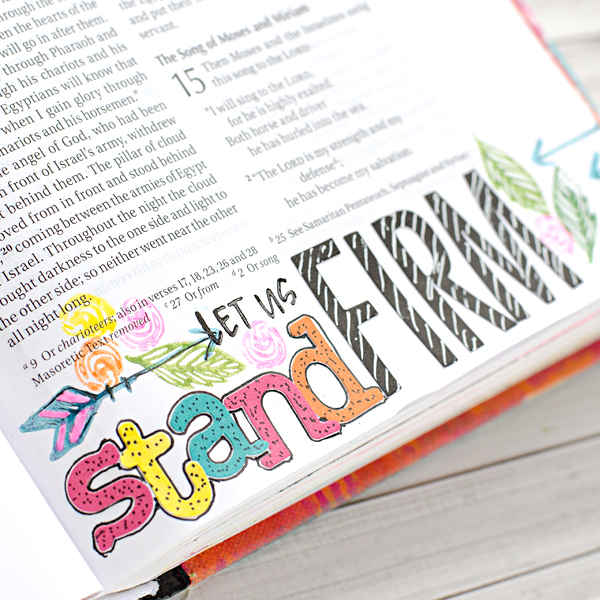 the hearts of the
will go in after them.
through Pharaoh and
gh his chariots and his
Egyptians will know that
when I gain glory through
chariots and his horsemen."
e angel of God, who had been
n front of Israel's army, withdrew
t behind them. The pillar of cloud
oved from in front and stood behind
20 coming between the armies of Egypt
Israel. Throughout the night the cloud
ought darkness to the one side and light to
the other side; so neither went near the other
all night long.
a 9 Or charioteers; also in verses 17, 18, 23, 26 and 28
Masoretic Text removed
c 27 Or from
d 2 Or song
and put their
servant.
The Song of Moses and Miriam
15 Then Moses and the Israelites sang
this song to the LORD:
"I will sing to the LORD,
for he is highly exalted.
Both horse and driver
he has hurled into the sea.
2 "The LORD is my strength and my
defense b;
he has become my salvation.
b 25 See Samaritan Pentateuch, Septuagint
LET US
stand FIRM